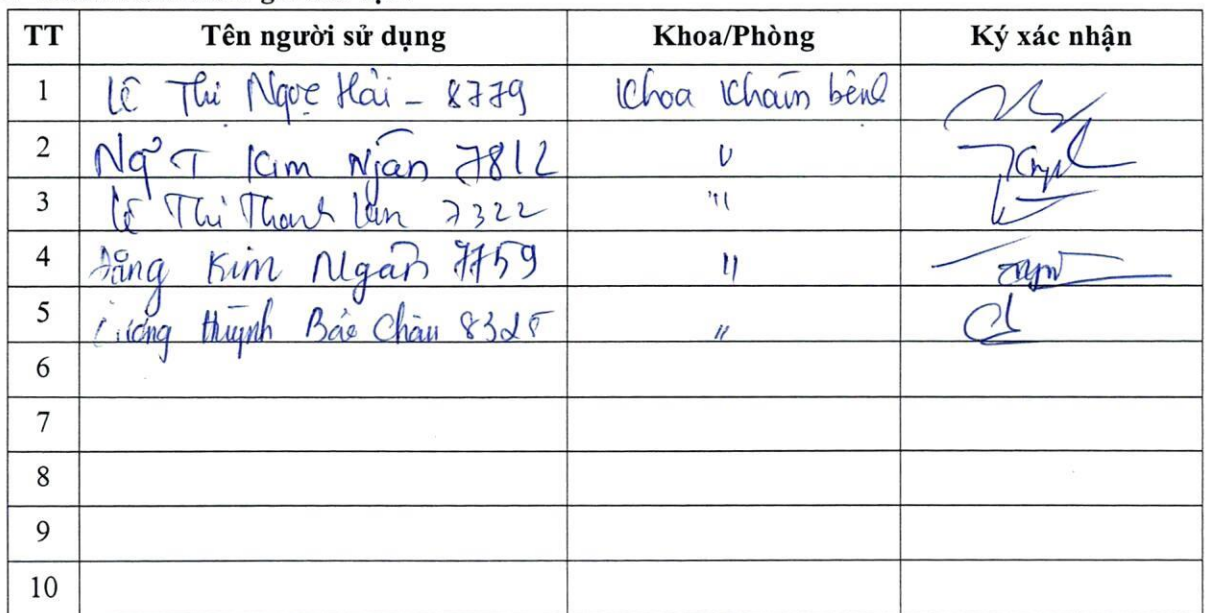 TT Tên người sử dụng Khoa/Phòng Ký xác nhận
1 Lê Thị Ngọc Hải - 8779 Khoa Khám bệnh
2 Ngô T Kim Ngân 7812 "
3 Lê Thị Thanh Vân 7322 "
4 Đặng Kim Ngân 7759 "
5 Huỳnh Bảo Châu 8325 "
6
7
8
9
10